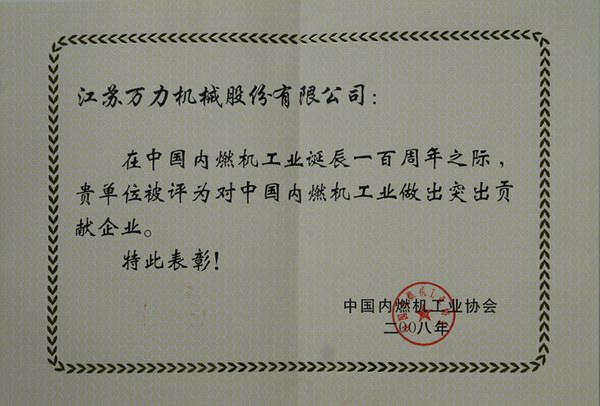 江苏万力机械股份有限公司：
在中国内燃机工业诞辰一百周年之际，
贵单位被评为对中国内燃机工业做出突出贡
献企业。
特此表彰！
中国内燃机工业协会
二00八年